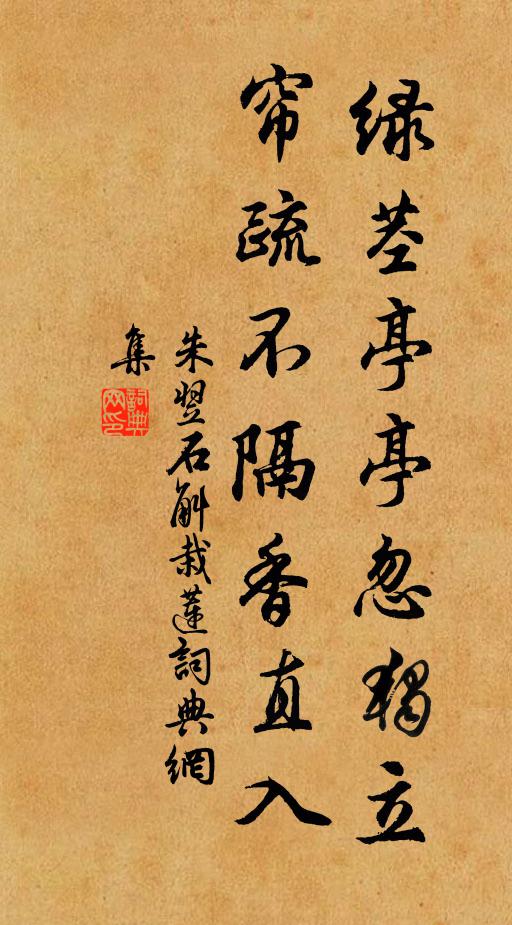 绿茎亭亭忽独立
帘疏不隔香直入
朱翌石斛栽莲詞典網
集
詞典
网印